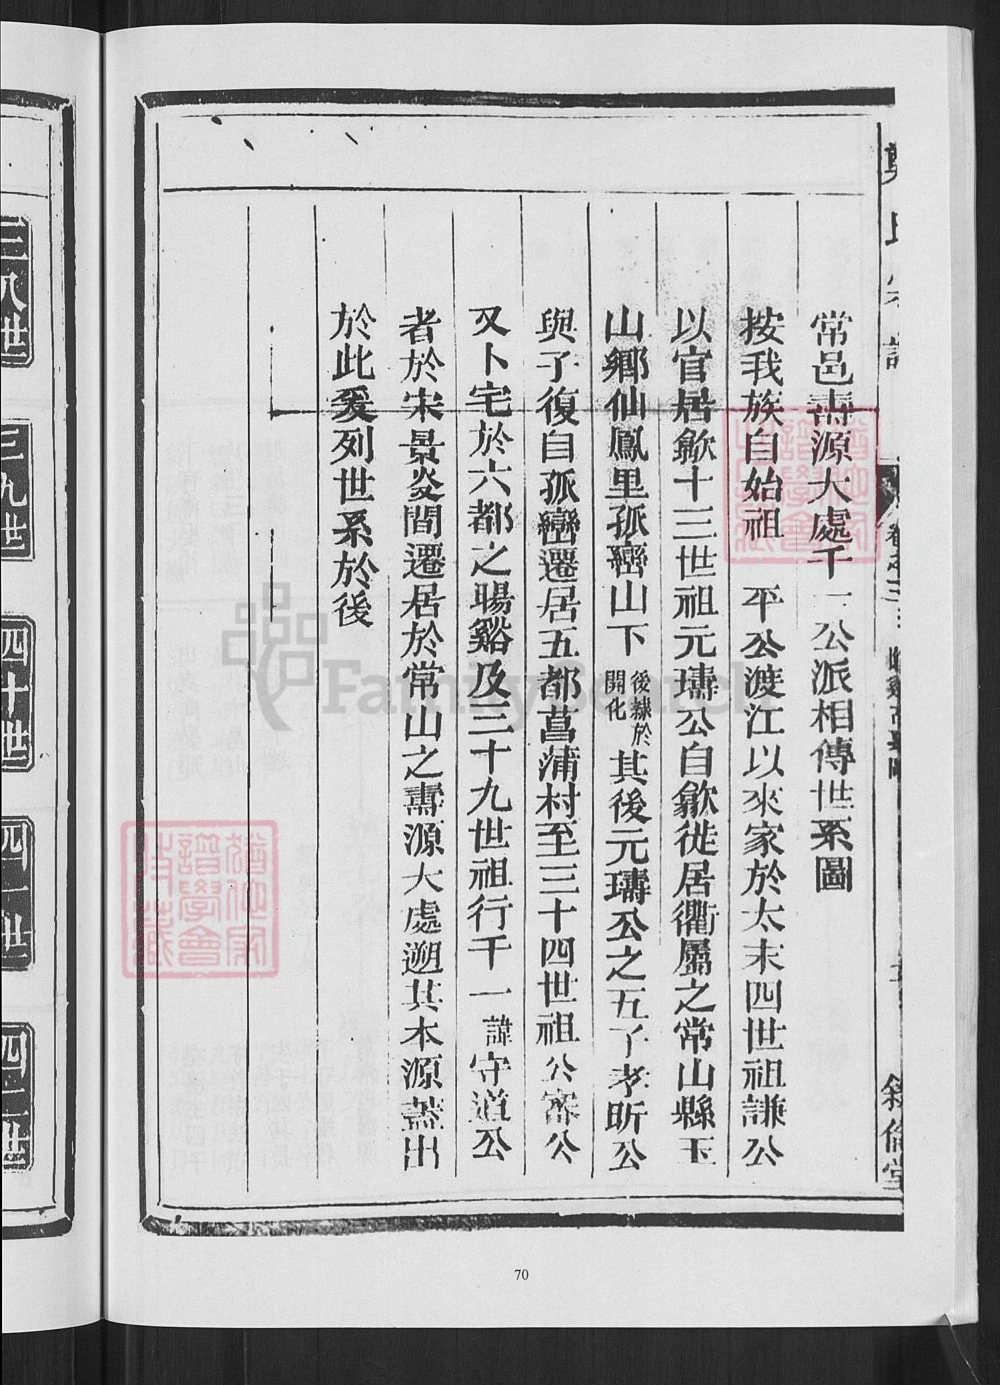 常邑壽源大處千一公派相傳世系圖
按我族自始祖　平公渡江以來家於太末四世祖謙公
以官居歙十三世祖元璹公自歙徙居衢屬之常山縣玉
山鄉仙鳳里孤巒山下後隸於開化其後元璹公之五子孝昕公
與子復自孤巒遷居五都菖蒲村至三十四世祖公審公
又卜宅於六都之暘谿及三十九世祖行千一諱守道公
者於宋景炎間遷居於常山之壽源大處遡其本源蓋出
於此爰列世系於後
鄭氏宗譜
卷之三
敘倫堂
三八世
三九世
四十世
四一世
四二世
70
FamilySearch